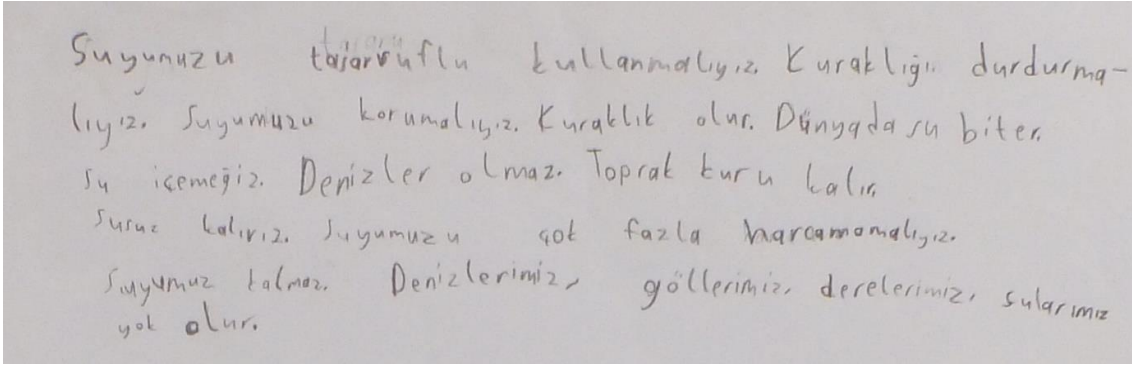 Suyunuzu tasarruflu kullanmalıyız. Kuraklığı durdurma-
lıyız. Suyumuzu korumalıyız. Kuraklık olur. Dünyada su biter.
Su içemeğiz. Denizler olmaz. Toprak kuru kalır.
Susuz kalırız. Suyumuzu çok fazla harcamamalıyız.
Suyumuz kalmaz. Denizlerimiz, göllerimiz, derelerimiz, sularımız
yok olur.